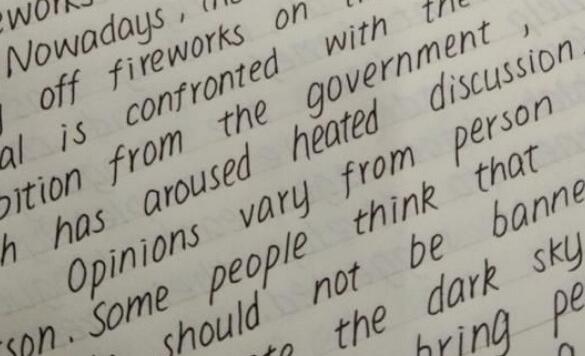 Nowadays,
off fireworks on
al is confronted with the
bition from the government,
h has aroused heated discussion.
Opinions vary from person
son. Some people think that
should not be banne
the dark sky
bring pe